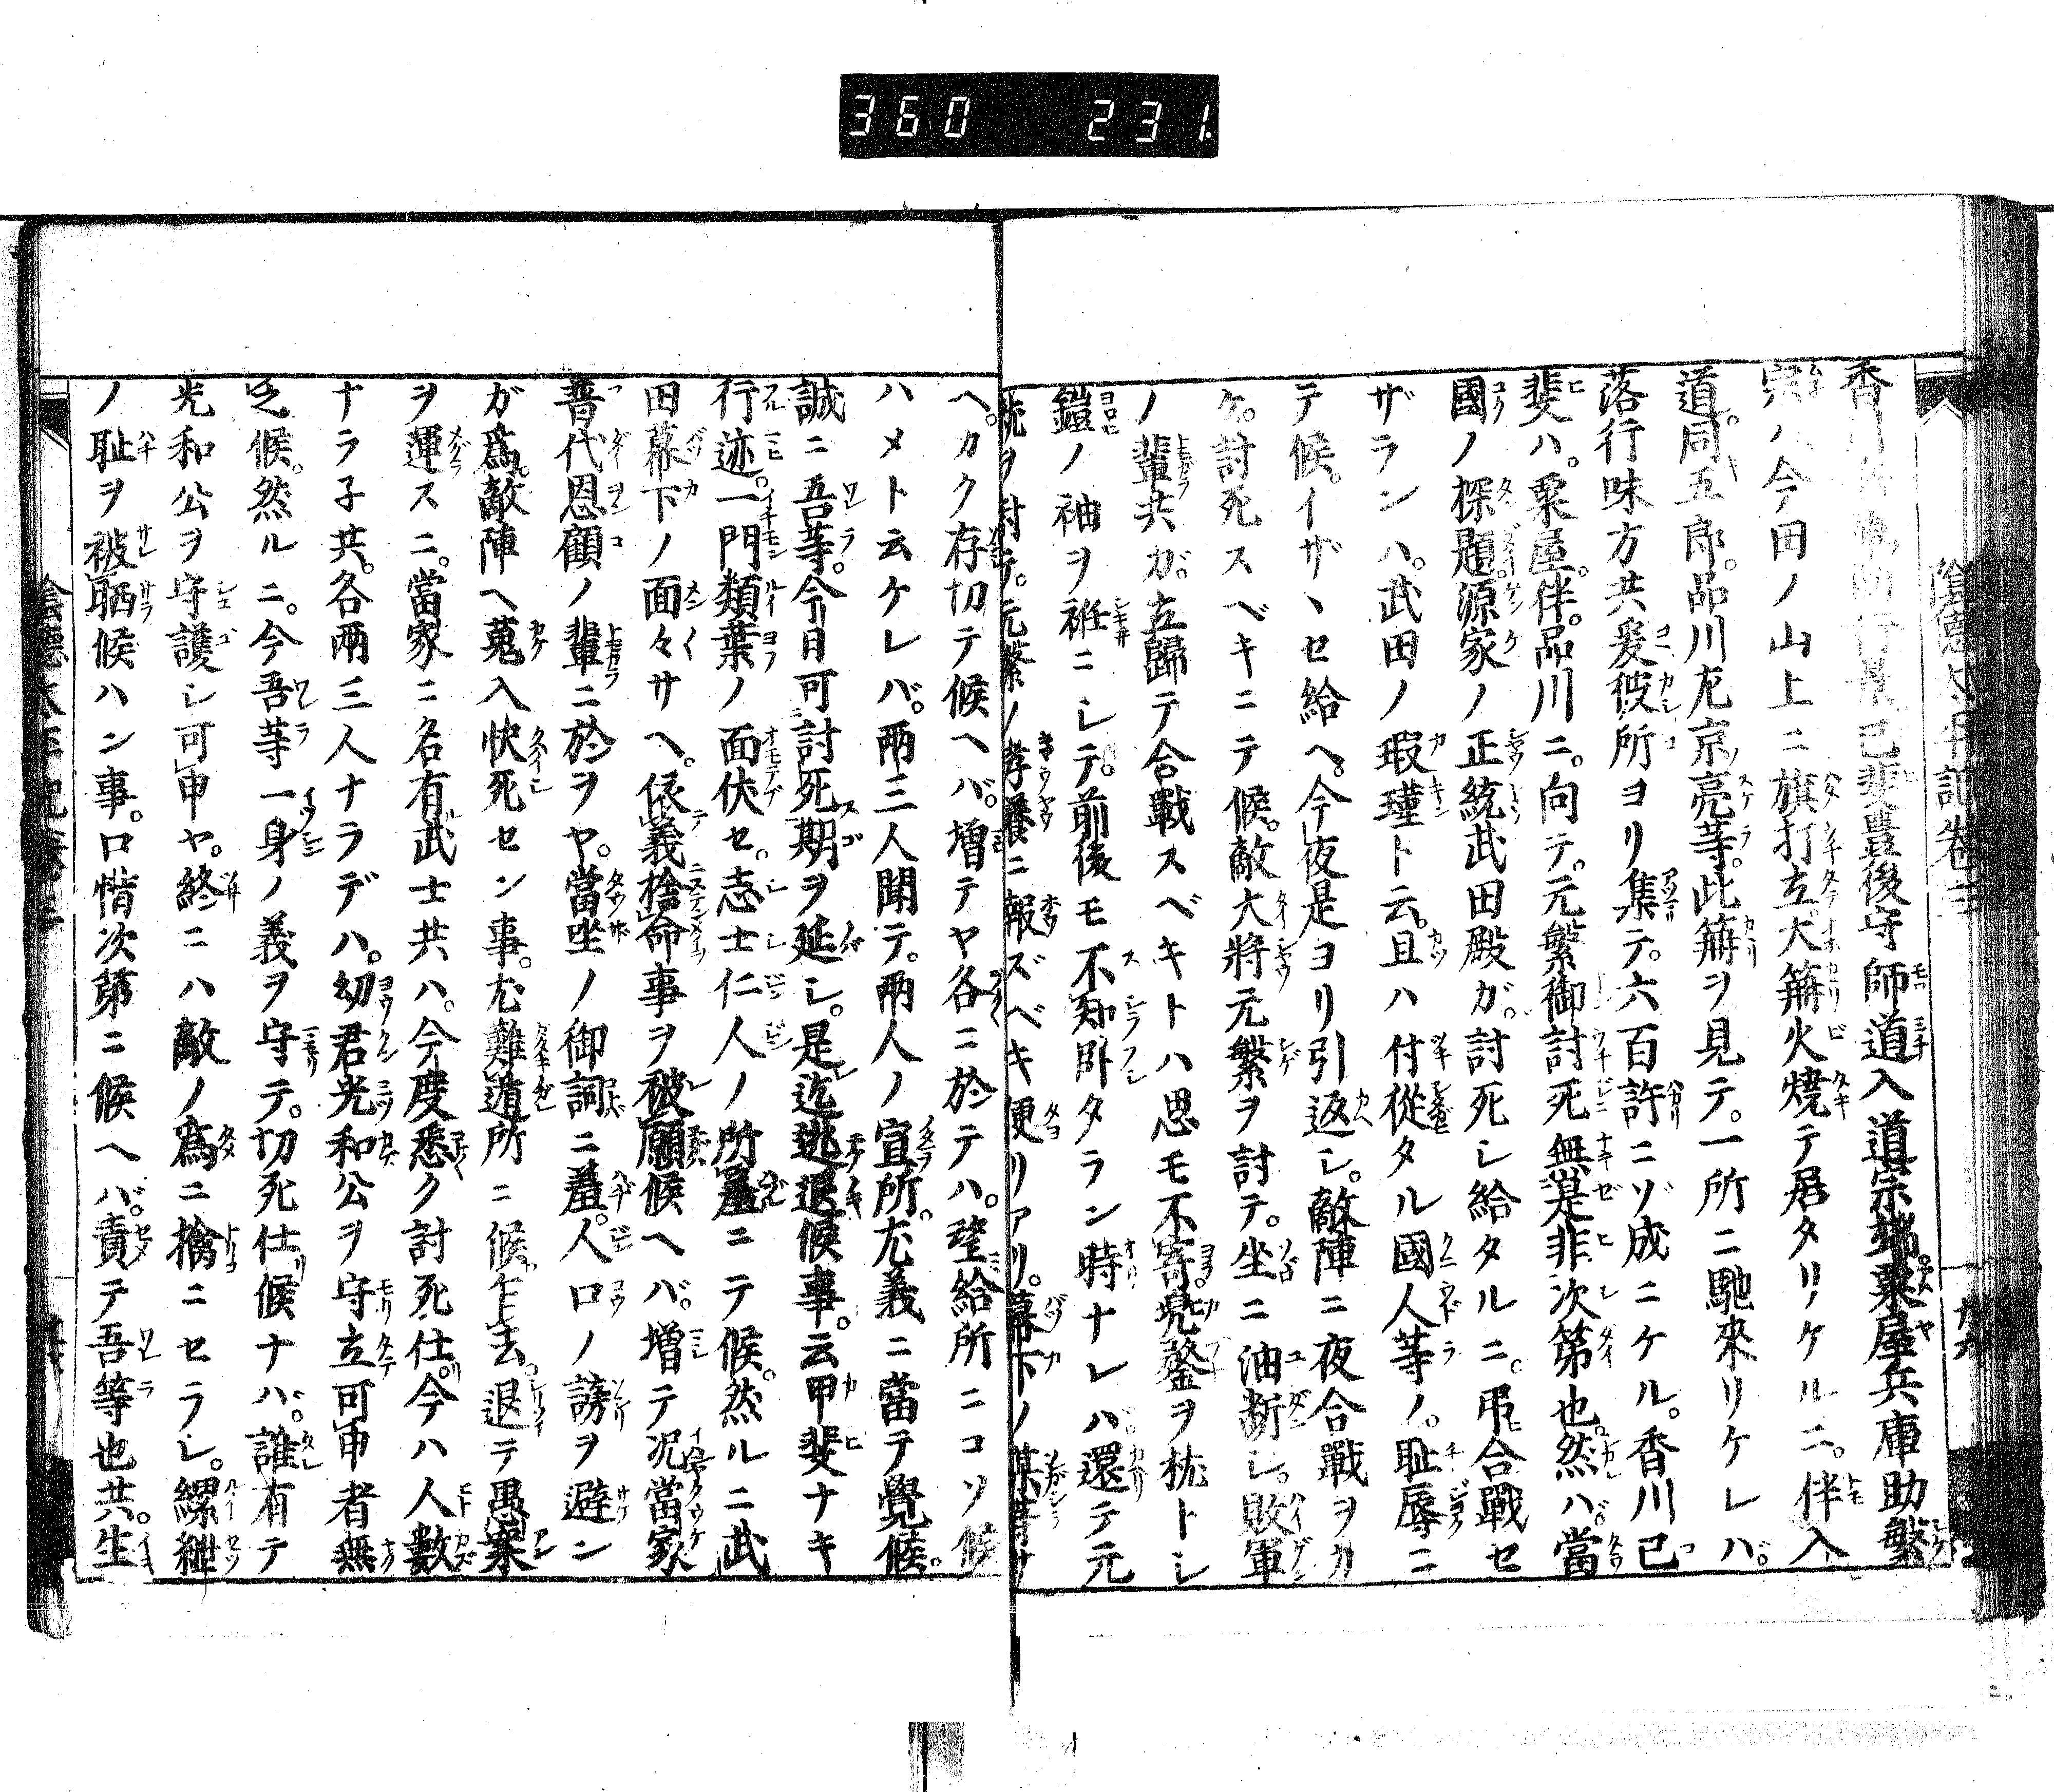 360 231
陰德太平記卷二
香川兵庫助行景己斐豊後守師道入道宗端粟屋兵庫助繁
宗ハ今田ノ山上ニ旗打立大篝火燒テ居タリケルニ。伴入
道。同五郎。品川左京亮等。此篝ヲ見テ。一所ニ馳來リケレバ。
落行味方共爰彼所ヨリ集テ。六百許ニゾ成ニケル。香川己
斐ハ。粟屋。伴。品川ニ。向テ。元繁御討死無是非次第也。然ハ。當
國ノ探題。源家ノ正統武田殿ガ。討死シ給タルニ。弔合戰セ
ザランハ。武田ノ瑕瑾ト云。且ハ付從タル國人等ノ。耻辱ニ
テ候。イザヽセ給ヘ。今夜是ヨリ引返シ。敵陣ニ夜合戰ヲカ
ケ。討死スベキニテ候。敵大將元繁ヲ討テ。坐ニ油斷シ。敗軍
ノ輩共ガ。立歸テ合戰スベキトハ思モ不寄。兜鍪ヲ枕トシ
鎧ノ袖ヲ衽ニシテ。前後モ不知臥タラン時ナレハ還テ元
就ヲ討テ。元繁ノ孝養ニ報ズベキ便リアリ。幕下ノ某等サ
ヘ。カク存切テ候ヘバ。増テヤ各ニ於テハ。望給所ニコソ候
ハメト云ケレバ。兩三人聞テ。兩人ノ宣所。尤義ニ當テ覺候。
誠ニ吾等。今日可討死期ヲ延シ。是迄逃退候事。云甲斐ナキ
行迹。一門類葉ノ面伏セ。志士仁人ノ所羞ニテ候。然ルニ武
田幕下ノ面々サヘ。依義捨命事ヲ被願候ヘバ。増テ况當家
普代恩顧ノ輩ニ於ヲヤ。當坐ノ御詞ニ羞。人口ノ謗ヲ避ン
ガ爲。敵陣ヘ蒐入快死セン事。尤難遁所ニ候乍去。退テ愚案
ヲ運スニ。當家ニ名有武士共ハ。今度悉ク討死仕。今ハ人數
ナラ子共。各兩三人ナラデハ。幼君光和公ヲ守立可申者無
之候。然ルニ。今吾等一身ノ義ヲ守テ。切死仕候ナハ。誰有テ
光和公ヲ守護シ可申ヤ。終ニハ敵ノ爲ニ擒ニセラレ。縲紲
ノ耻ヲ被晒候ハン事。口惜次第ニ候ヘバ。責テ吾等也共。生